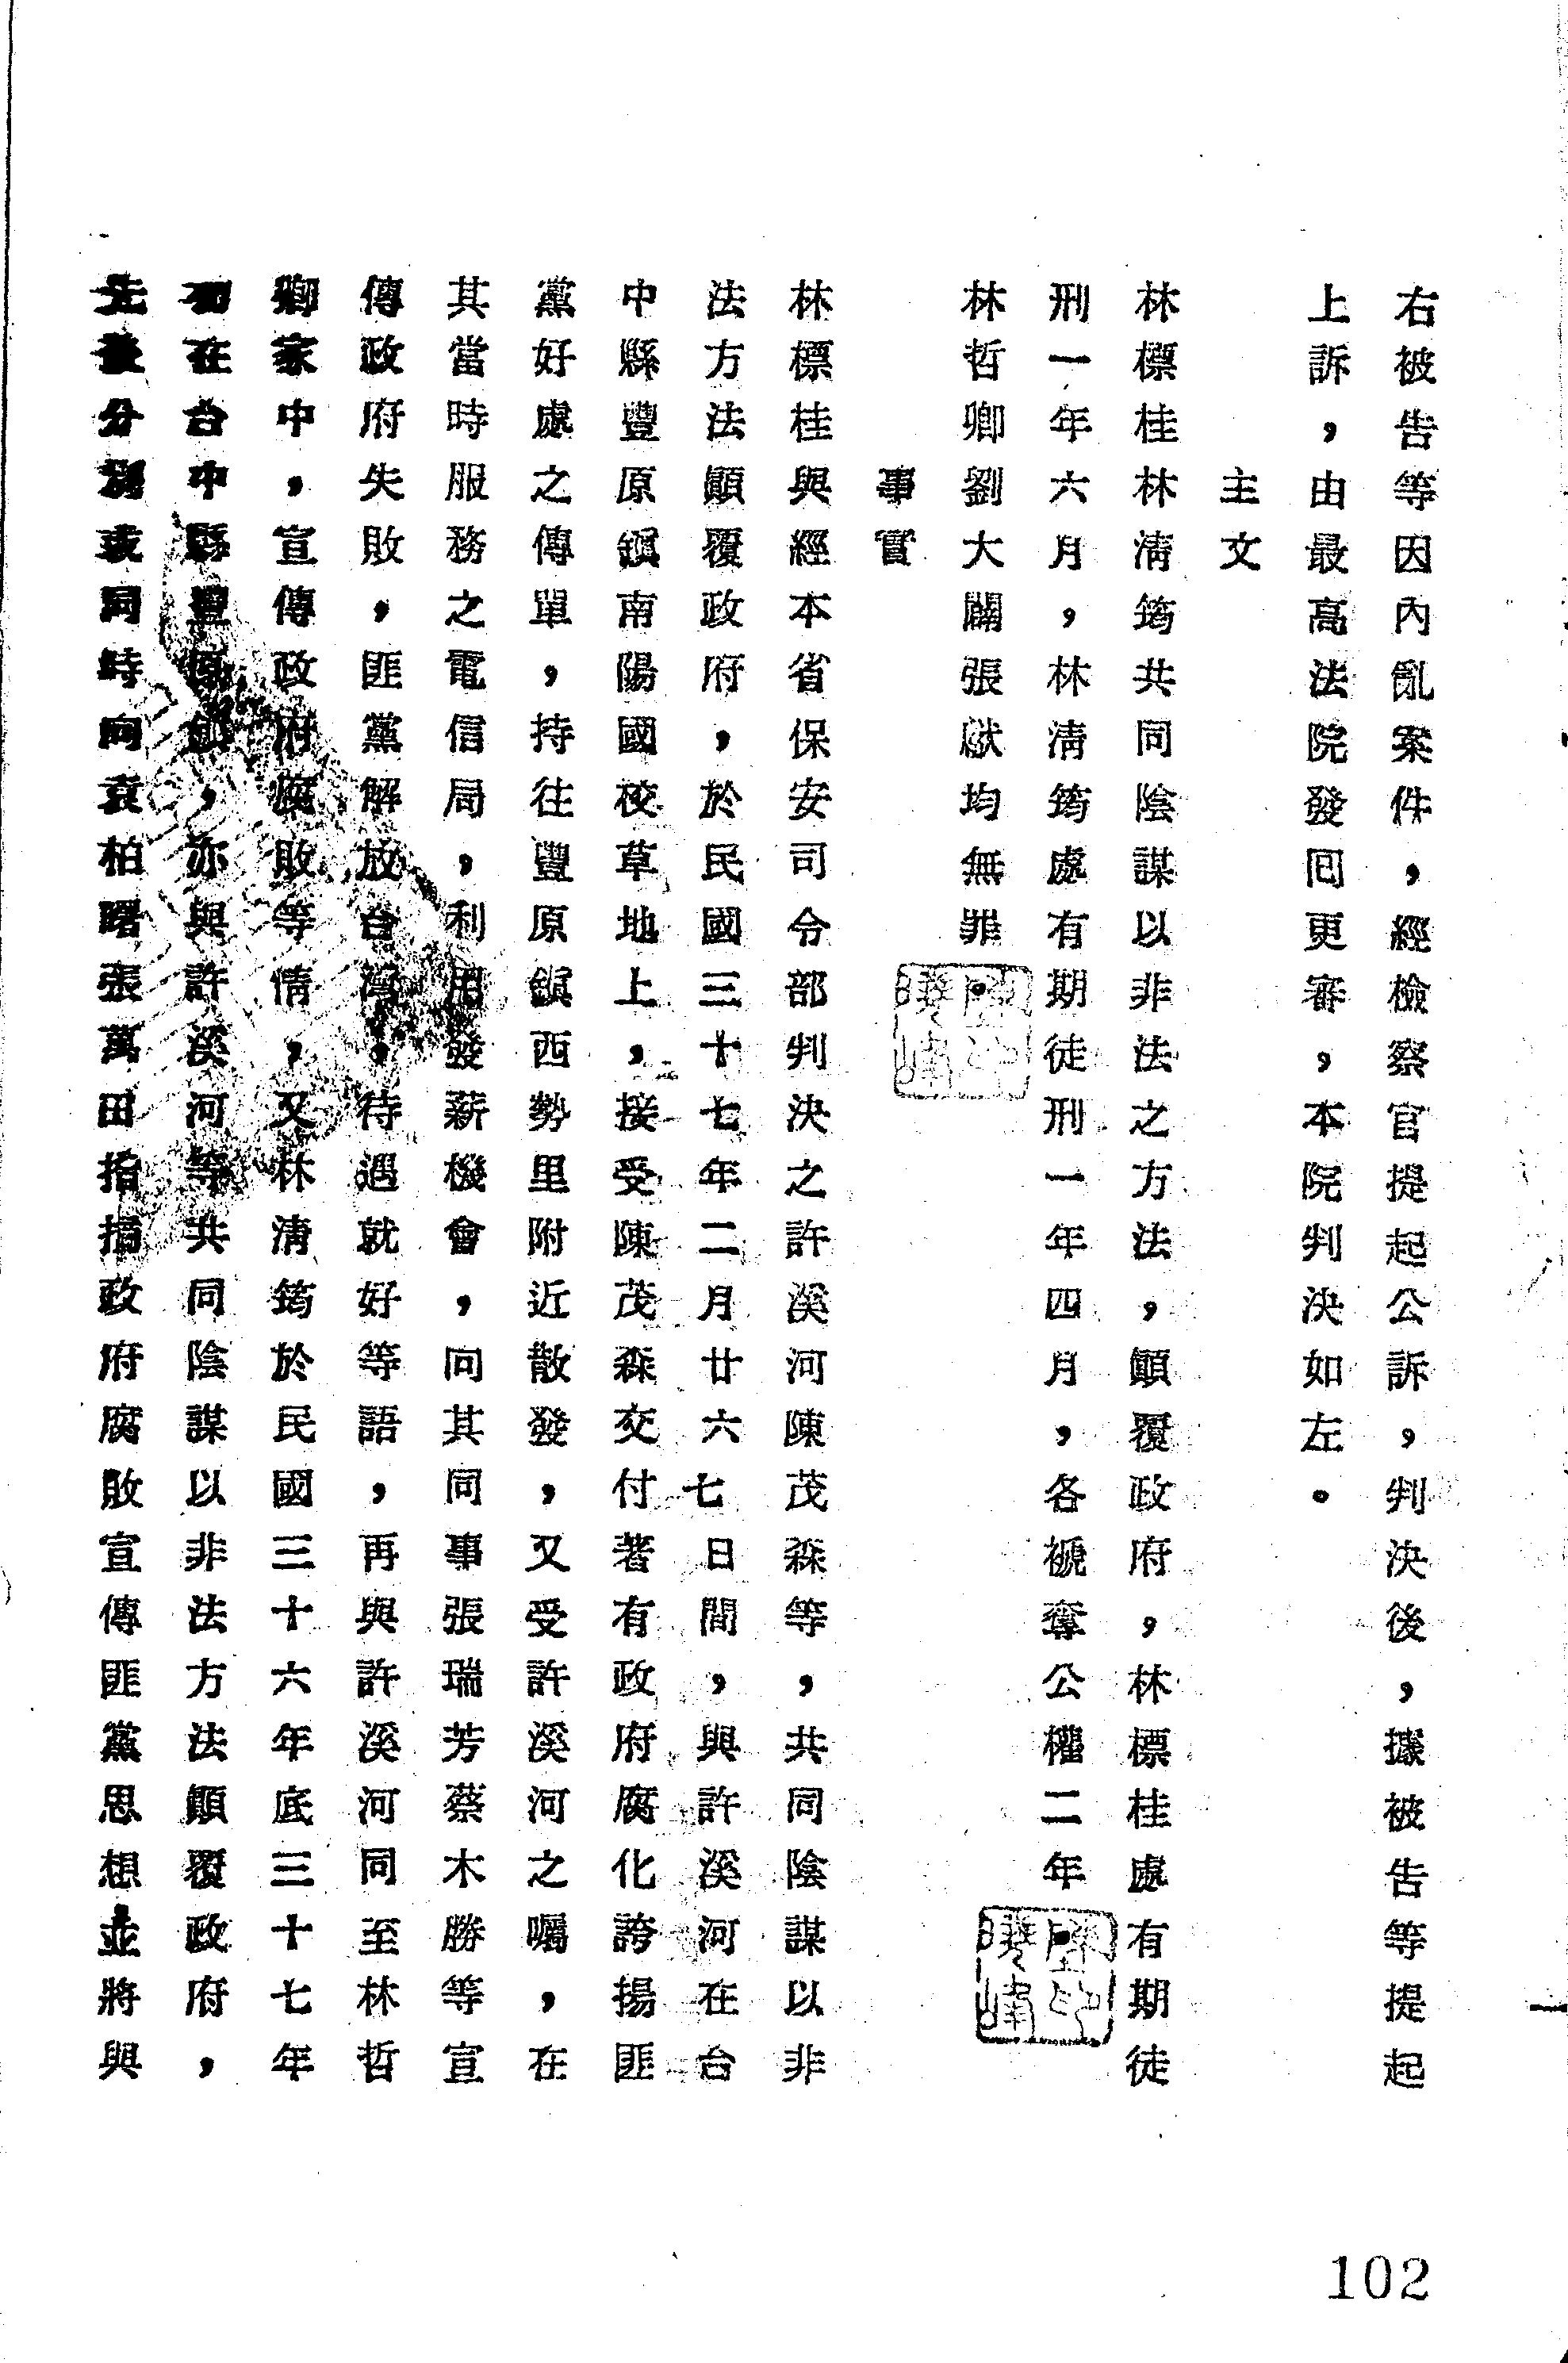 右被告等因內亂案件，經檢察官提起公訴，判決後，據被告等提起
上訴，由最高法院發回更審，本院判決如左。
主文
林標桂林清筠共同陰謀以非法之方法，顚覆政府，林標桂處有期徒
刑一年六月，林清筠處有期徒刑一年四月，各褫奪公權二年
林哲卿劉大關張獻均無罪
事實
林標桂與經本省保安司令部判決之許溪河陳茂森等，共同陰謀以非
法方法顚覆政府，於民國三十七年二月廿六七日間，與許溪河在台
中縣豐原鎮南陽國校草地上，接受陳茂森交付著有政府腐化誇揚匪
黨好處之傳單，持往豐原鎮西勢里附近散發，又受許溪河之囑，在
其當時服務之電信局，利用發薪機會，向其同事張瑞芳蔡木勝等宣
傳政府失敗，匪黨解放台灣，待遇就好等語，再與許溪河同至林哲
卿家中，宣傳政府腐敗等情，又林清筠於民國三十六年底三十七年
初在台中縣豐原鎮，亦與許溪河等共同陰謀以非法方法顚覆政府，
先後分別或同時向袁柏曙張萬田指摘政府腐敗宣傳匪黨思想並將與
102